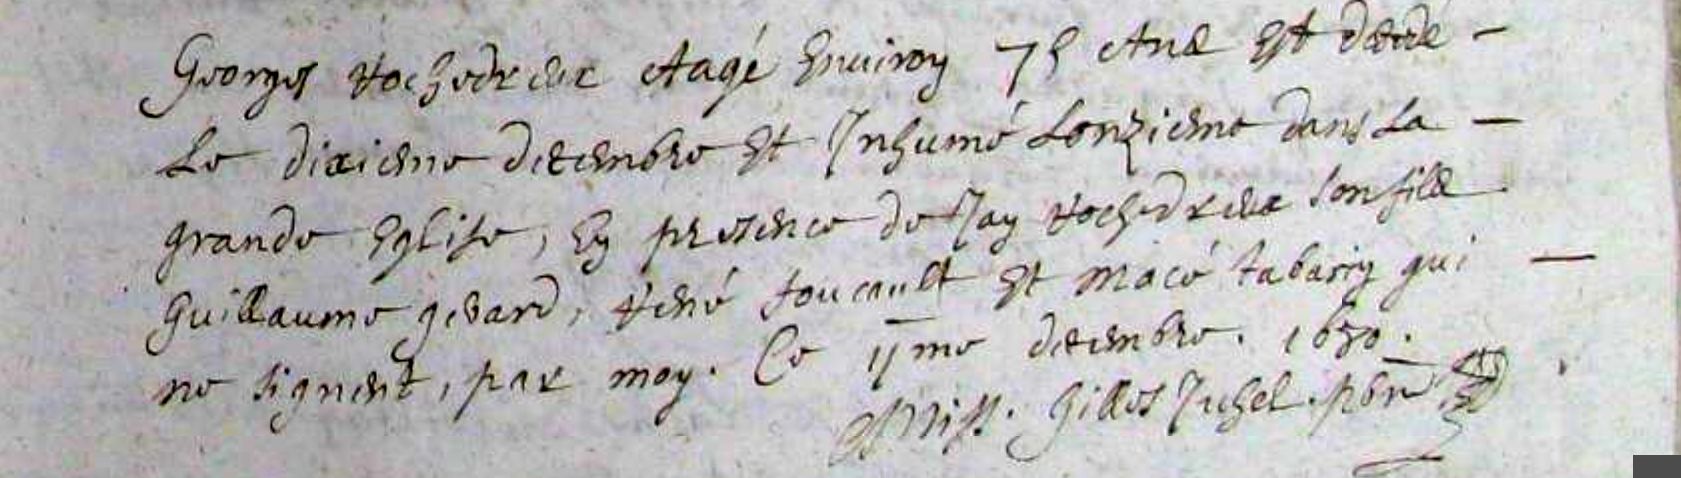 Georges Rochedreux Aagé Enuiron 75 Ans Est décédé –
Le dixiesme decembre Et Inhumé Lonziesme dans La –
grande Eglise, En presence de Jan Rochedreux son filz
Guillaume gerard, René foucault Et Macé tabarin qui –
ne signent, par moy. Ce 11me decembre. 1650.
Gilles Juhel. pbre